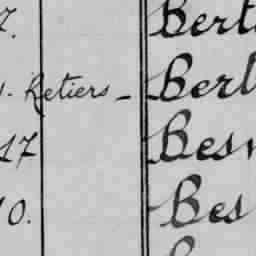 7. Bert
. Retiers - Berl
17 Besn
10. Bes